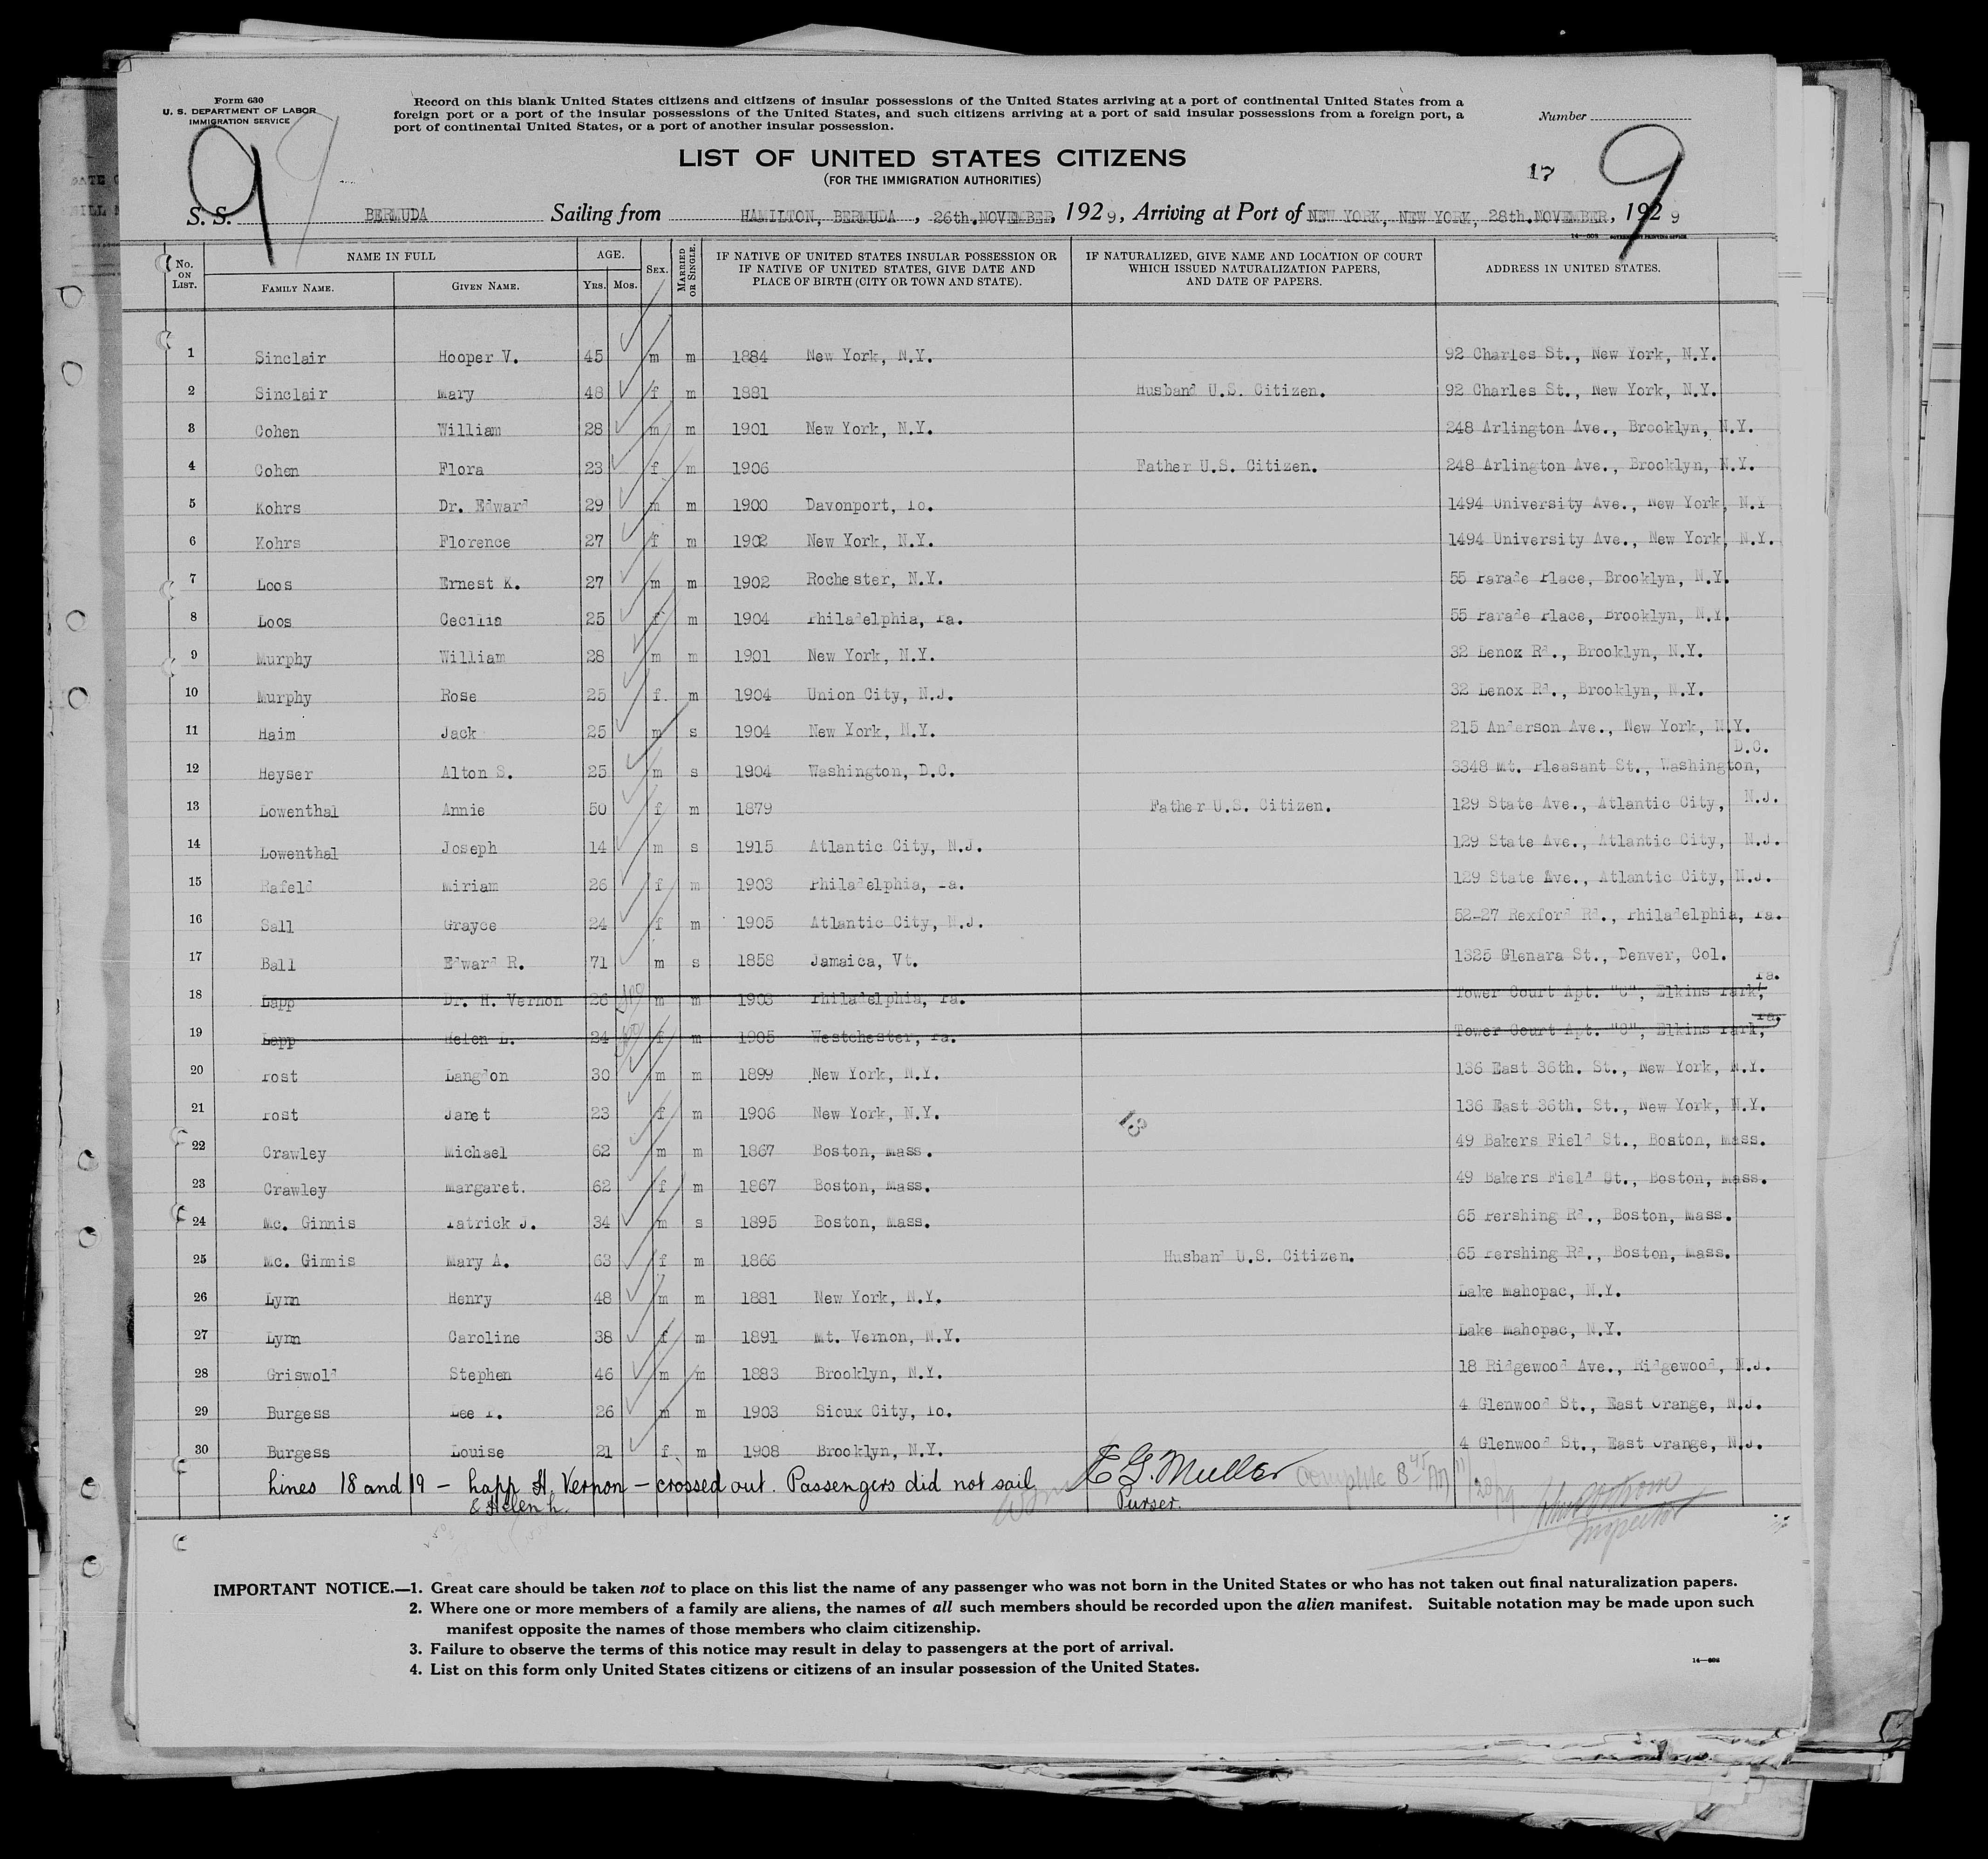 Form 630
U. S. DEPARTMENT OF LABOR
IMMIGRATION SERVICE
Record on this blank United States citizens and citizens of insular possessions of the United States arriving at a port of continental United States from a
foreign port or a port of the insular possessions of the United States, and such citizens arriving at a port of said insular possessions from a foreign port, a
port of continental United States, or a port of another insular possession.
Number
9 9
LIST OF UNITED STATES CITIZENS
(FOR THE IMMIGRATION AUTHORITIES)
17 9
S. S. BERMUDA Sailing from HAMILTON, BERMUDA, 26th.NOVEMBER, 1929, Arriving at Port of NEW YORK, NEW YORK, 28th.NOVEMBER, 1929
No. ON LIST. NAME IN FULL FAMILY NAME. GIVEN NAME. AGE. YRS. MOS. SEX. MARRIED OR SINGLE. IF NATIVE OF UNITED STATES INSULAR POSSESSION OR IF NATIVE OF UNITED STATES, GIVE DATE AND PLACE OF BIRTH (CITY OR TOWN AND STATE). IF NATURALIZED, GIVE NAME AND LOCATION OF COURT WHICH ISSUED NATURALIZATION PAPERS, AND DATE OF PAPERS. ADDRESS IN UNITED STATES.
1 Sinclair Hooper V. 45 m m 1884 New York, N.Y. 92 Charles St., New York, N.Y.
2 Sinclair Mary 48 f m 1881 Husband U.S. Citizen. 92 Charles St., New York, N.Y.
3 Cohen William 28 m m 1901 New York, N.Y. 248 Arlington Ave., Brooklyn, N.Y.
4 Cohen Flora 23 f m 1906 Father U.S. Citizen. 248 Arlington Ave., Brooklyn, N.Y.
5 Kohrs Dr. Edward 29 m m 1900 Davonport, Io. 1494 University Ave., New York, N.Y
6 Kohrs Florence 27 f m 1902 New York, N.Y. 1494 University Ave., New York, N.Y.
7 Loos Ernest K. 27 m m 1902 Rochester, N.Y. 55 Parade Place, Brooklyn, N.Y.
8 Loos Cecilia 25 f m 1904 Philadelphia, Pa. 55 Parade Place, Brooklyn, N.Y.
9 Murphy William 28 m m 1901 New York, N.Y. 32 Lenox Rd., Brooklyn, N.Y.
10 Murphy Rose 25 f. m 1904 Union City, N.J. 32 Lenox Rd., Brooklyn, N.Y.
11 Haim Jack 25 m s 1904 New York, N.Y. 215 Anderson Ave., New York, N.Y.
12 Heyser Alton S. 25 m s 1904 Washington, D.C. 3348 Mt. Pleasant St., Washington, D.C.
13 Lowenthal Annie 50 f m 1879 Father U.S. Citizen. 129 State Ave., Atlantic City, N.J.
14 Lowenthal Joseph 14 m s 1915 Atlantic City, N.J. 129 State Ave., Atlantic City, N.J.
15 Rafeld Miriam 26 f m 1903 Philadelphia, Pa. 129 State Ave., Atlantic City, N.J.
16 Sall Grayce 24 f m 1905 Atlantic City, N.J. 52-27 Rexford Rd., Philadelphia, Pa.
17 Ball Edward R. 71 m s 1858 Jamaica, Vt. 1325 Glenara St., Denver, Col.
18 Lapp Dr. H. Vernon 26 m m 1903 Philadelphia, Pa. Tower Court Apt. "C", Elkins Park, Pa.
19 Lapp Helen L. 24 f m 1905 Westchester, Pa. Tower Court Apt. "C", Elkins Park, Pa.
20 Post Langdon 30 m m 1899 New York, N.Y. 136 East 36th. St., New York, N.Y.
21 Post Janet 23 f m 1906 New York, N.Y. 136 East 36th. St., New York, N.Y.
13
22 Crawley Michael 62 m m 1867 Boston, Mass. 49 Bakers Field St., Boston, Mass.
23 Crawley Margaret. 62 f m 1867 Boston, Mass. 49 Bakers Field St., Boston, Mass.
24 Mc. Ginnis Patrick J. 34 m s 1895 Boston, Mass. 65 Pershing Rd., Boston, Mass.
25 Mc. Ginnis Mary A. 63 f m 1866 Husband U.S. Citizen. 65 Pershing Rd., Boston, Mass.
26 Lynn Henry 48 m m 1881 New York, N.Y. Lake Mahopac, N.Y.
27 Lynn Caroline 38 f m 1891 Mt. Vernon, N.Y. Lake Mahopac, N.Y.
28 Griswold Stephen 46 m m 1883 Brooklyn, N.Y. 18 Ridgewood Ave., Ridgewood, N.J.
29 Burgess Lee P. 26 m m 1903 Sioux City, Io. 4 Glenwood St., East Orange, N.J.
30 Burgess Louise 21 f. m 1908 Brooklyn, N.Y. 4 Glenwood St., East Orange, N.J.
Lines 18 and 19 - Lapp H. Vernon - crossed out. Passengers did not sail E G. Muller Complete 8 45 AM
& Helen L. Purser. Inspector
IMPORTANT NOTICE.—1. Great care should be taken not to place on this list the name of any passenger who was not born in the United States or who has not taken out final naturalization papers.
2. Where one or more members of a family are aliens, the names of all such members should be recorded upon the alien manifest. Suitable notation may be made upon such
manifest opposite the names of those members who claim citizenship.
3. Failure to observe the terms of this notice may result in delay to passengers at the port of arrival.
4. List on this form only United States citizens or citizens of an insular possession of the United States.